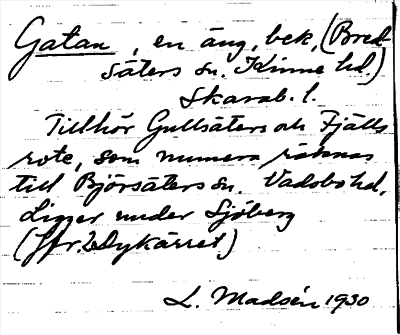 Gatan, en äng, bek, (Bred-
säters sn. Kinne hd.)
Skarab. l.
Tillhör Gullsäters och Fjälls
rote, som numera räknas
till Björsäters sn. Vadsbo hd.
Ligger under Sjöberg
(Jfr. 2 Dykärret.)
L. Madsén 1930